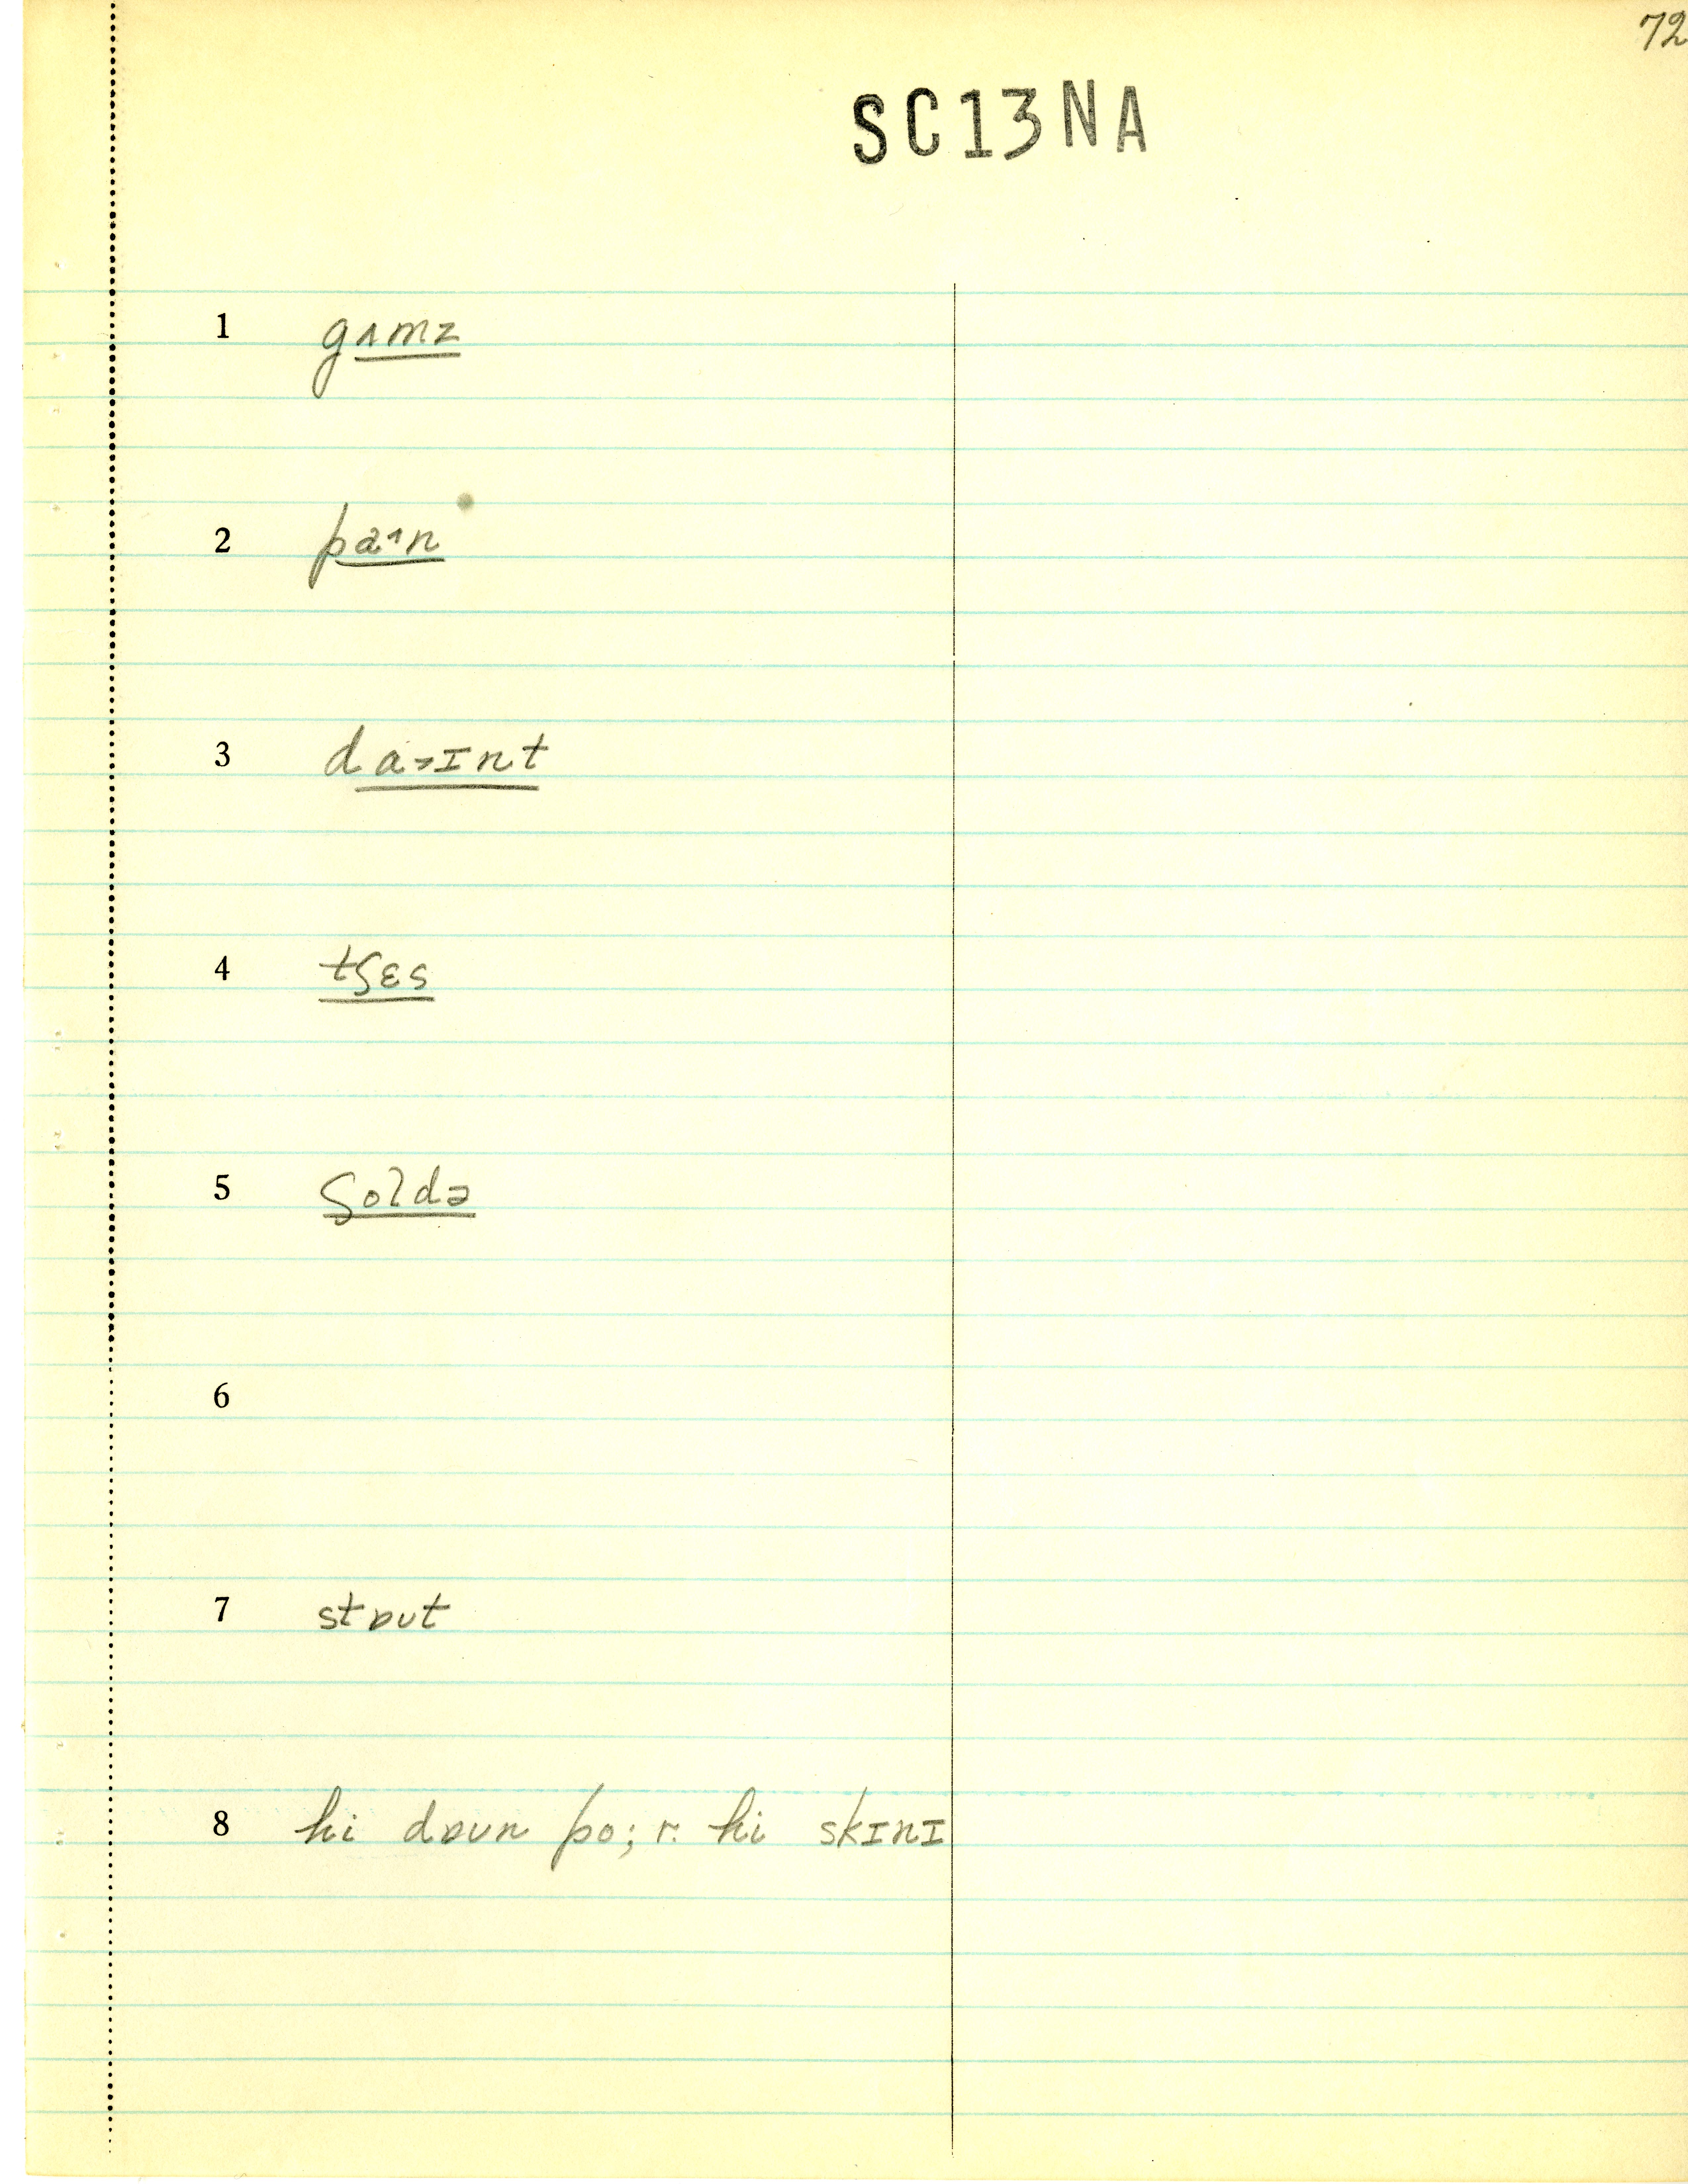 72
SC13NA
1 gʌmz
2 pa˄n
3 da˃ɪnt
4 tʃɛs
5 ʃoldə
6
7 stɒut
8 hi dɒun po; r. hi skɪnɪ